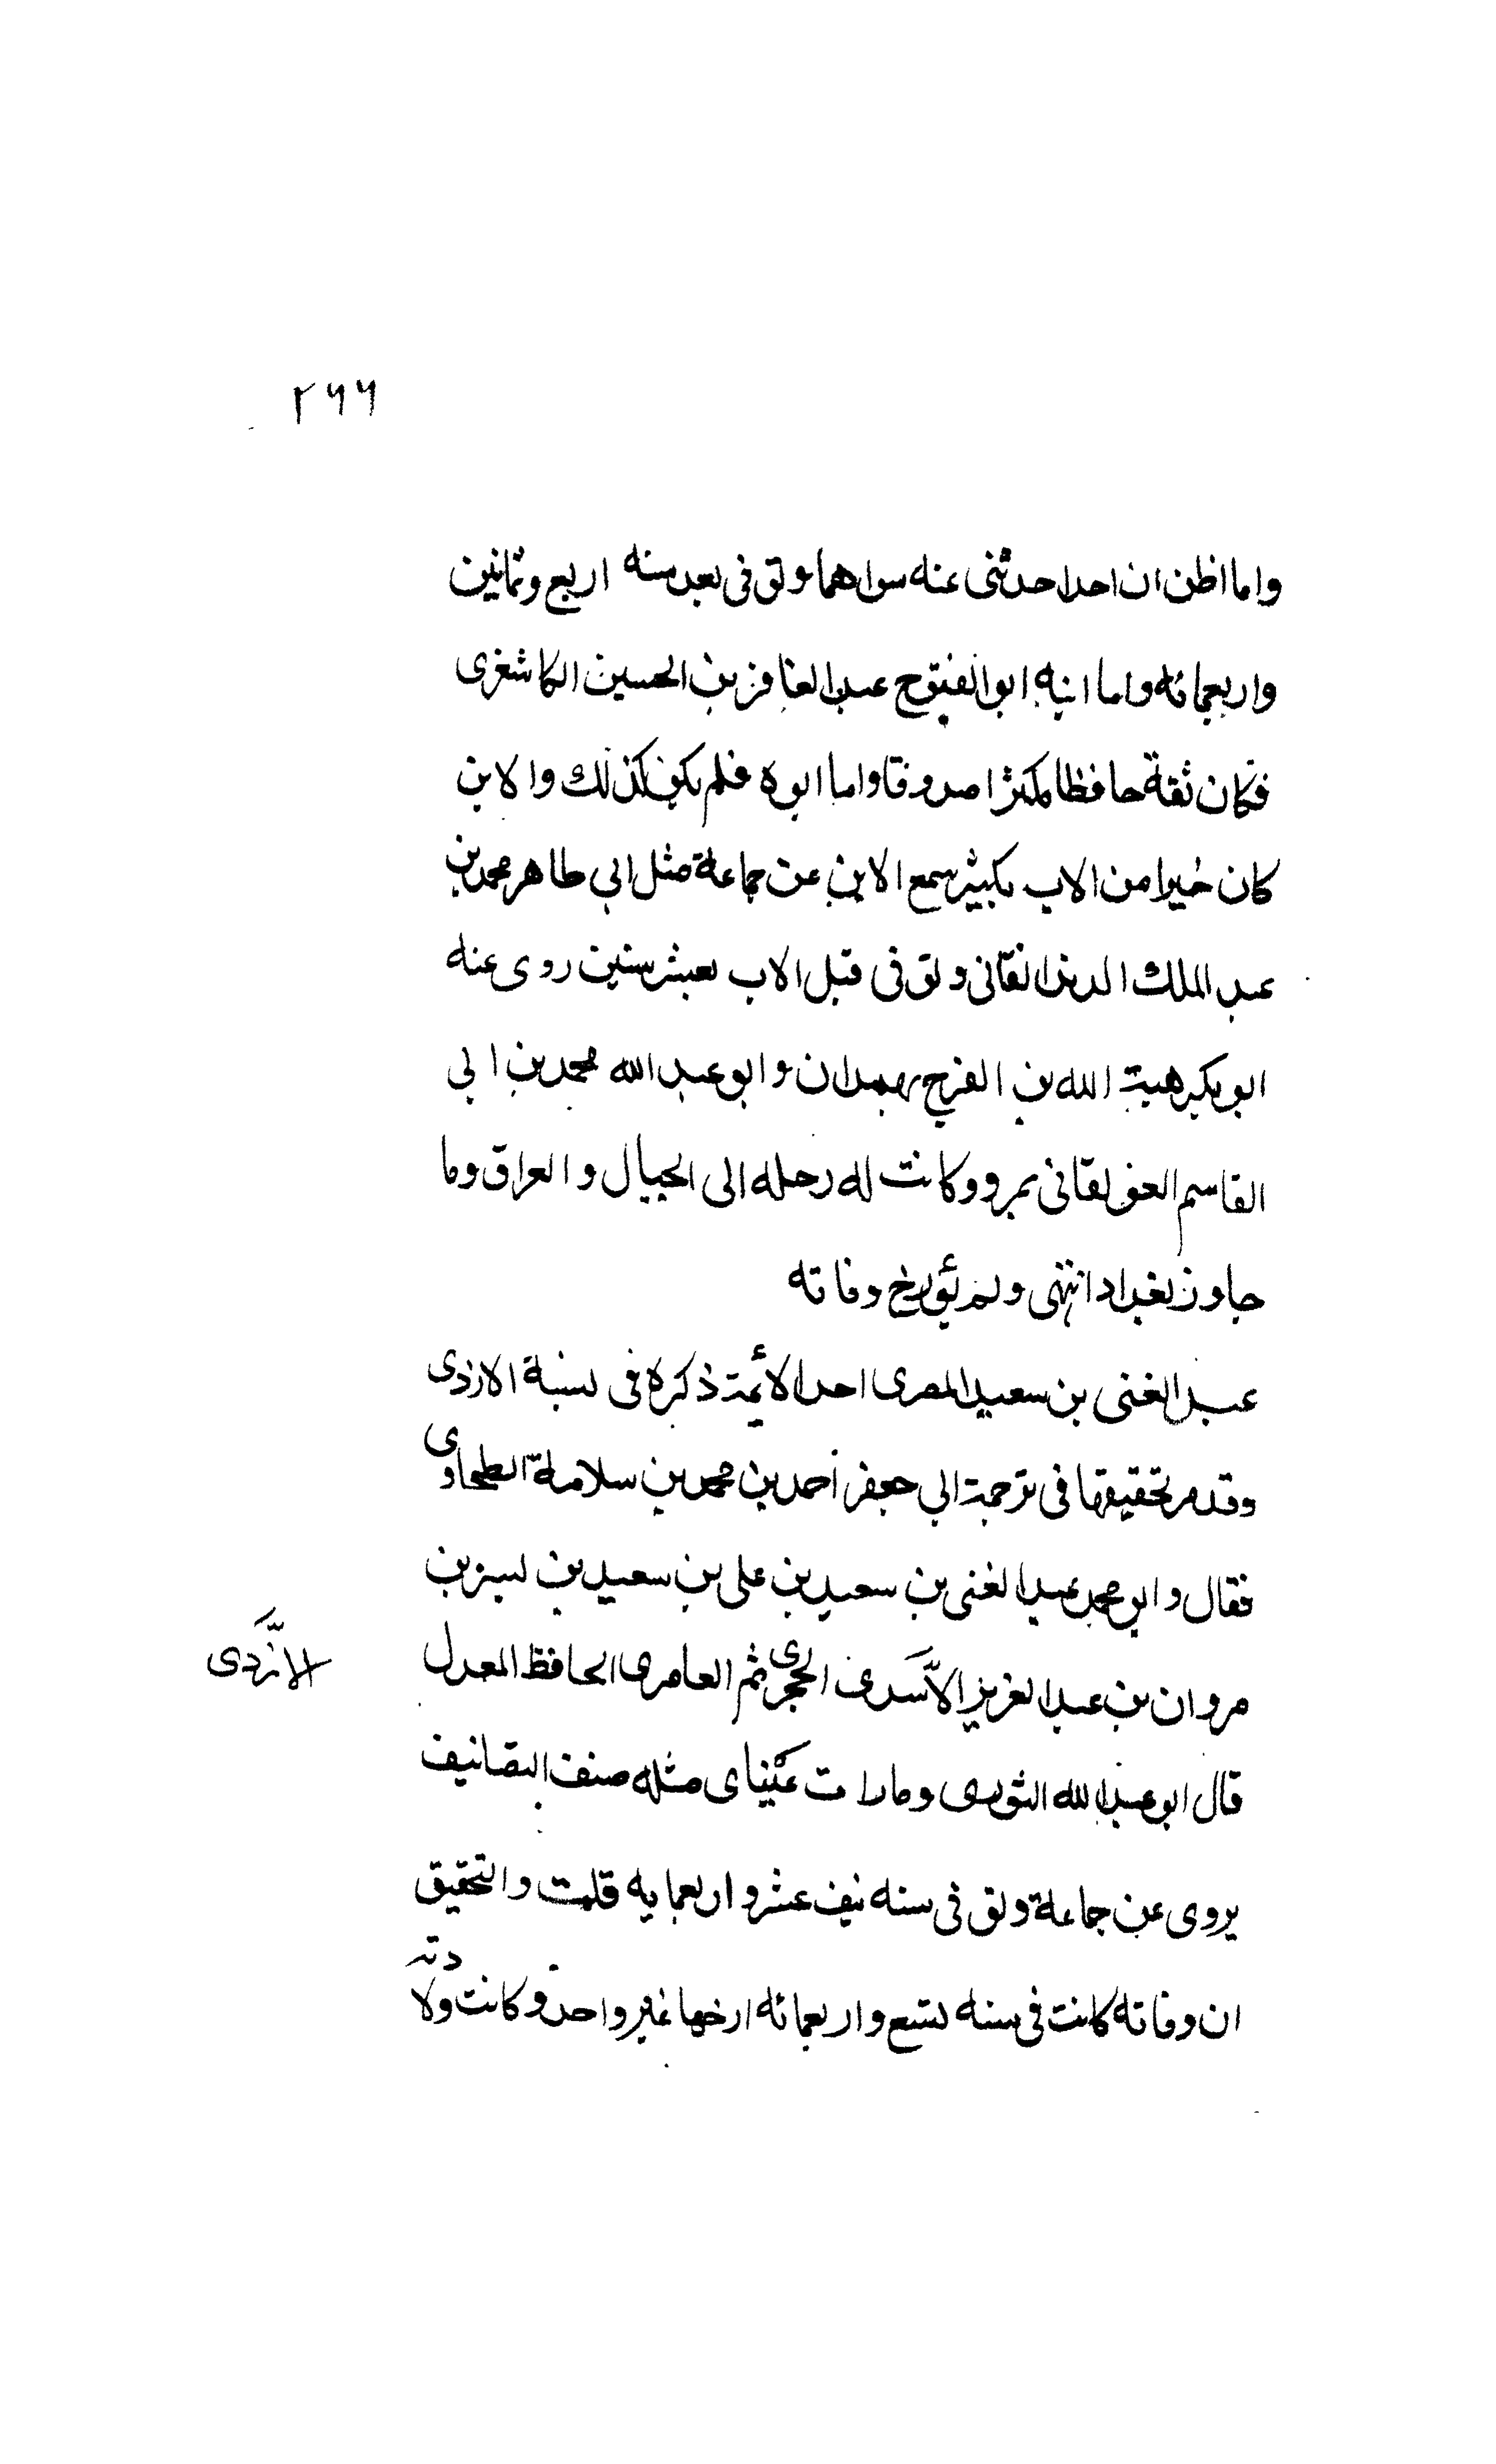 ٢٦٦
واما اظن ان احدا حدثنى عنه سواهما وتوفى بعد سنه اربع وثمانين
واربعمائه واما ابنه ابو الفتوح عبد الغافر بن الحسين الكاشغرى
فكان ثقة حافظا مكثرا صدوقا واما ابوه فلم يكن كذلك والابن
كان خيرا من الاب بكثير سمع الابن عن جماعة مثل ابي طاهر محمد بن
عبد الملك الدندانقانى وتوفى قبل الاب بعشر سنين روى عنه
ابو بكر هبة الله بن الفرج بهمدان وابو عبد الله محمد بن ابي
القاسم العز لقانى بمرو وكانت له رحله الى الجبال والعراق وما
جاوز بغداد انتهى ولم يؤرخ وفاته
عبد الغنى بن سعيد المصرى احد الائمة ذكره فى نسبة الازدى
وقد مر تحقيقها فى ترجمة ابي جعفر أحمد بن محمد بن سلامة الطحاوى
فقال وابو محمد عبد الغنى بن سعيد بن على بن سعيد بن بشر بن
مروان بن عبد العزيز الأسدى الحجرى ثم العامرى الحافظ المعدل
الأزدى
قال ابو عبد الله الثورى وما رات عيناى مثله صنف التصانيف
يروى عن جماعة وتوفى سنه نيف عشر واربعمايه قلت والتحقيق
ان وفاته كانت فى سنه تسع واربعمائه ارخها غير واحد وكانت ولادته